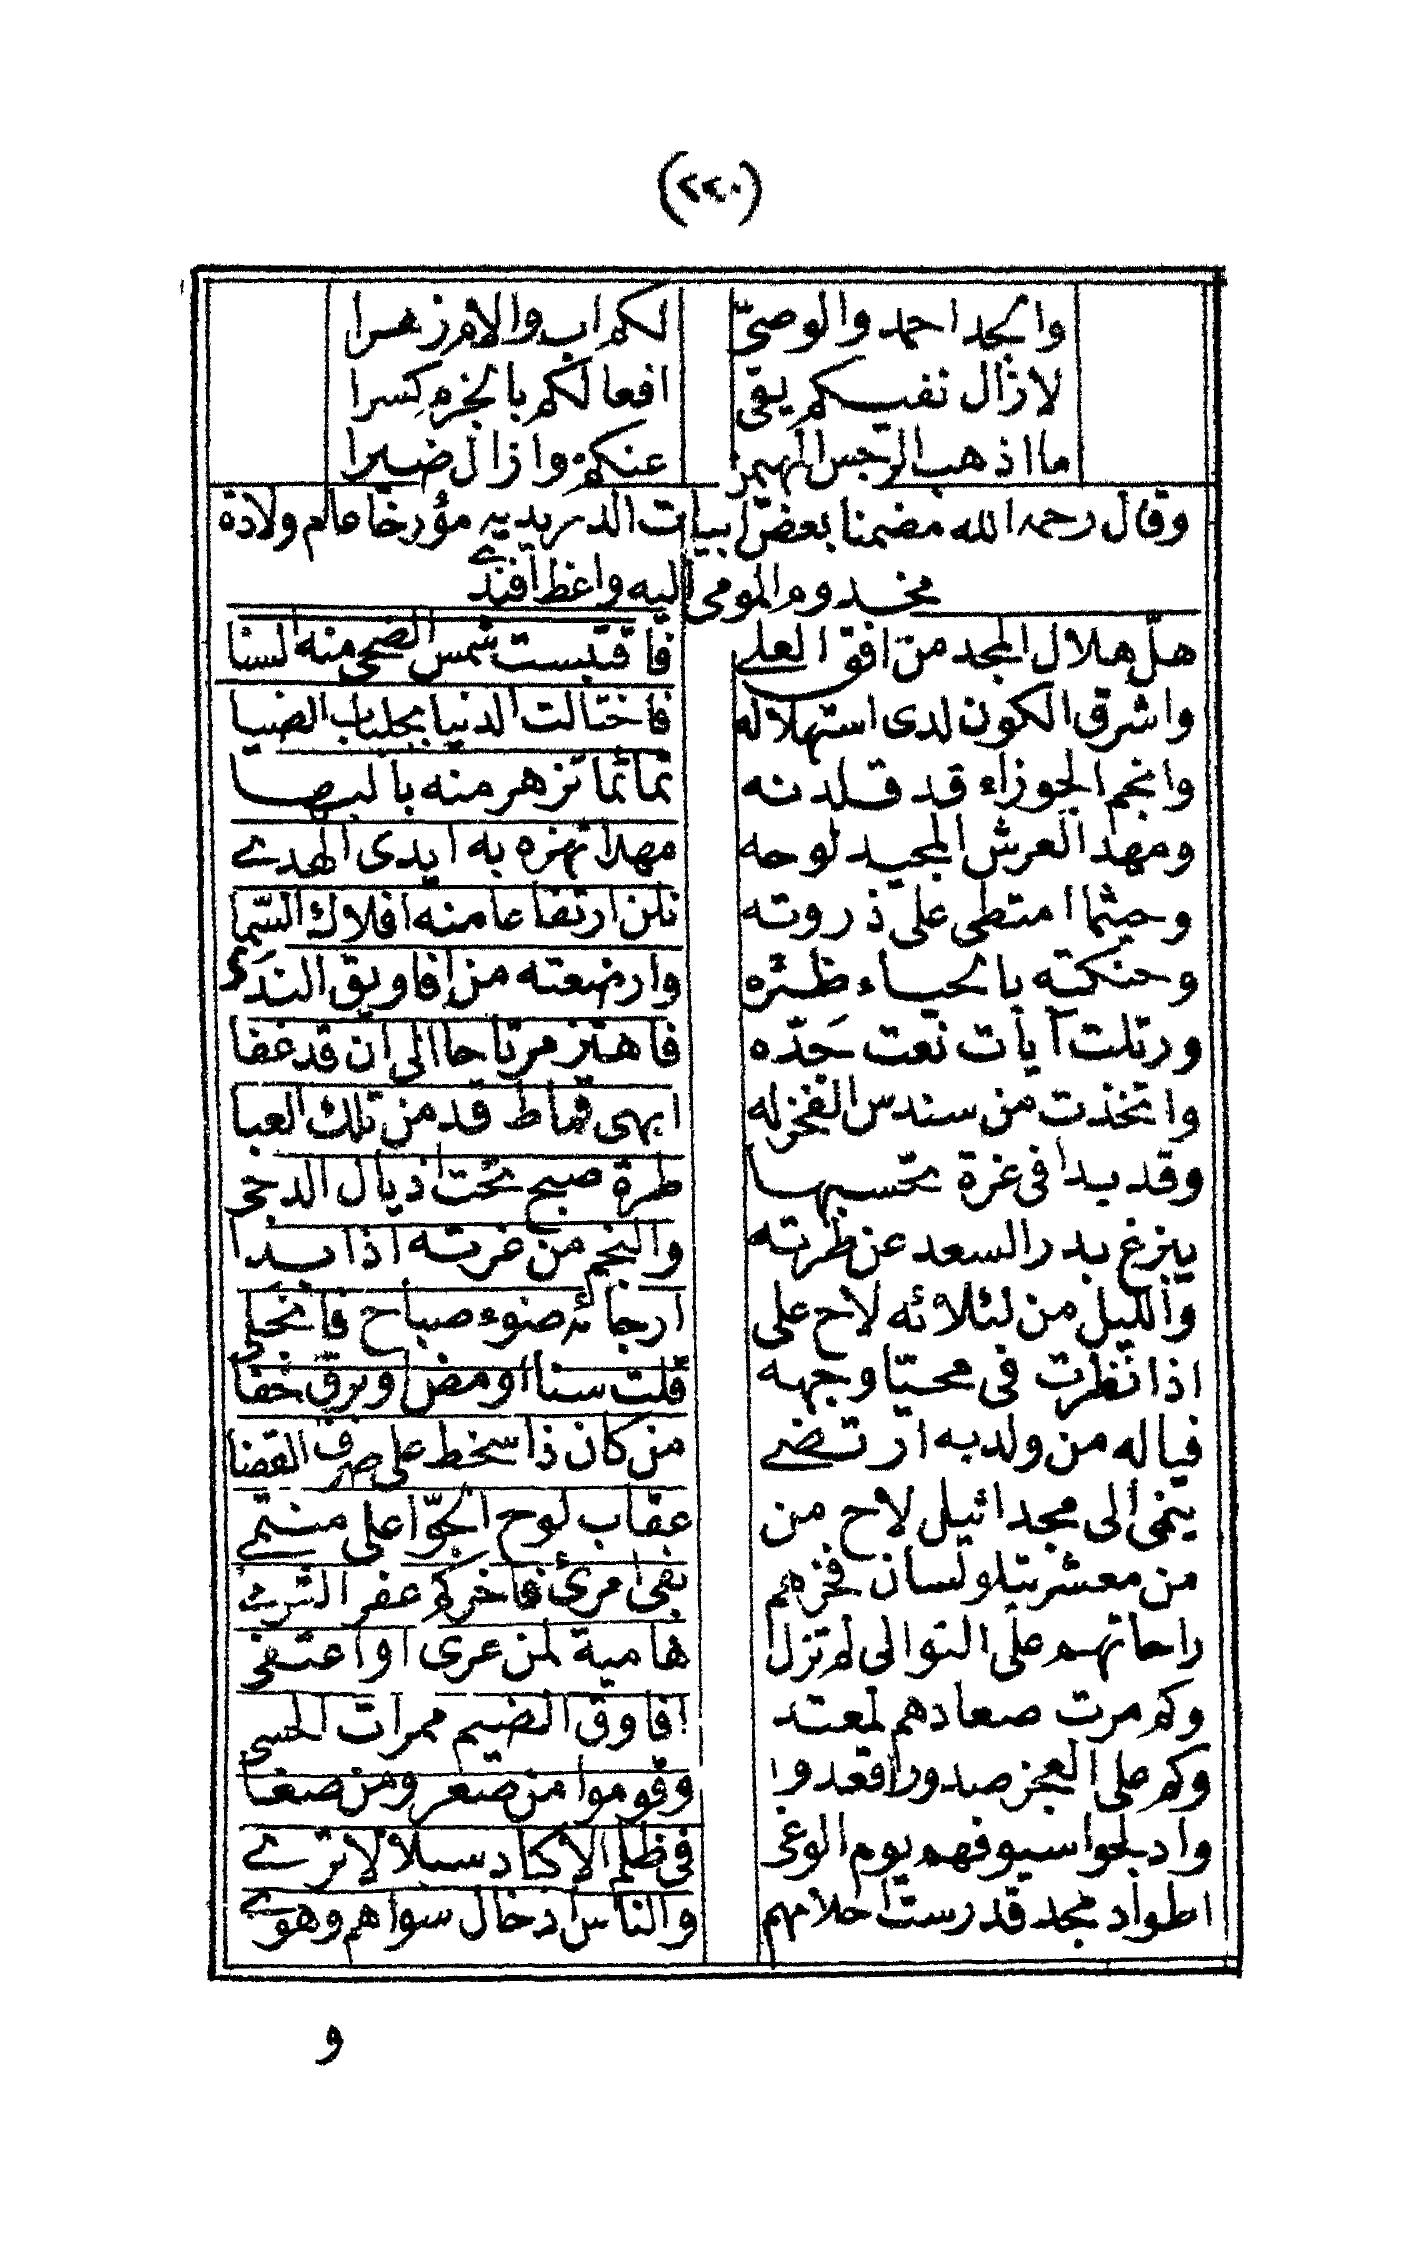 (٢٢٠)
والجد احمد والوصيّ لكم اب والام زهرا
لازال نفيكم يقى افعالكم بالجزم كسرا
مااذهب الرجس المهيمن عنكم وازال ضيرا
وقال رحمه الله مضمنا بعض ابيات الدريديه مؤرخا عام ولادة
مخدوم المومى اليه واعظ افندے
هلّ هلال المجد من افق العلے فاقتبست شمس الضحى منه السنا
واشرق الكون لدى استهلاله فاختالت الدنيا بجلباب الضيا
وانجم الجوزاء قد قلدنه تمائما تزهر منه بالبها
ومهد العرش المجيد لوحه مهلا تهزه به ايدى الهدے
وحيثما امتطى على ذروته نلن ارتفاعا منه افلاك السّما
وحنكته بالحياء ظئره وارضعته من افاويق الندى
ورتلت آيات نعت حَدّه فاهتز مرتاحا الى ان قد غفا
واتخذت من سندس الفخر له ابهى قماط قد من تلك العبا
وقد بدا فى غرة تحسبها طرة صبح تحت اذيال الدجى
يبزغ بدر السعد عن طرته والنجم من غرته اذا بدا
والليل من لئلائه لاح على ارجائه ضوء صباح فانجلى
اذا نظرت فى محيّا وجهه قلت سنا اومض او برق خفا
فياله من ولد به ارتضے من كان ذا سخط على صرف القضا
ينمى الى مجد اثيل لاح من عقاب لوح الجوّ اعلى منتمے
من معشر يتلو لسان فخرهم بفى امرئ فاخركم عفر الثرے
راحاتهم على التوالى لم تزل هامية لمن عرى او اعتفى
وكم مرت صعادهم لمعتد افاوق الضيم ممرات الحسى
وكم على العجز صدورا قعدوا وقوموا من صعر ومن صغا
وادلجوا سيوفهم يوم الوغى فى ظلم الاكباد سبلا لا ترے
اطواد مجد قد رست احلامهم والناس ادخال سواهم وهوے
و